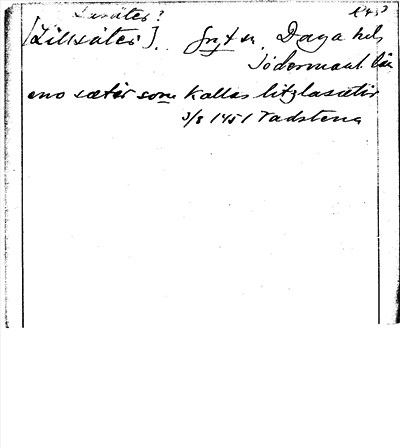 Lusäter?
[Lillsäter]. Gryt sn. Daga hd,
Södermanl. län
eno sætær som kallas litzlasætir
3/8 1451 Vadstena